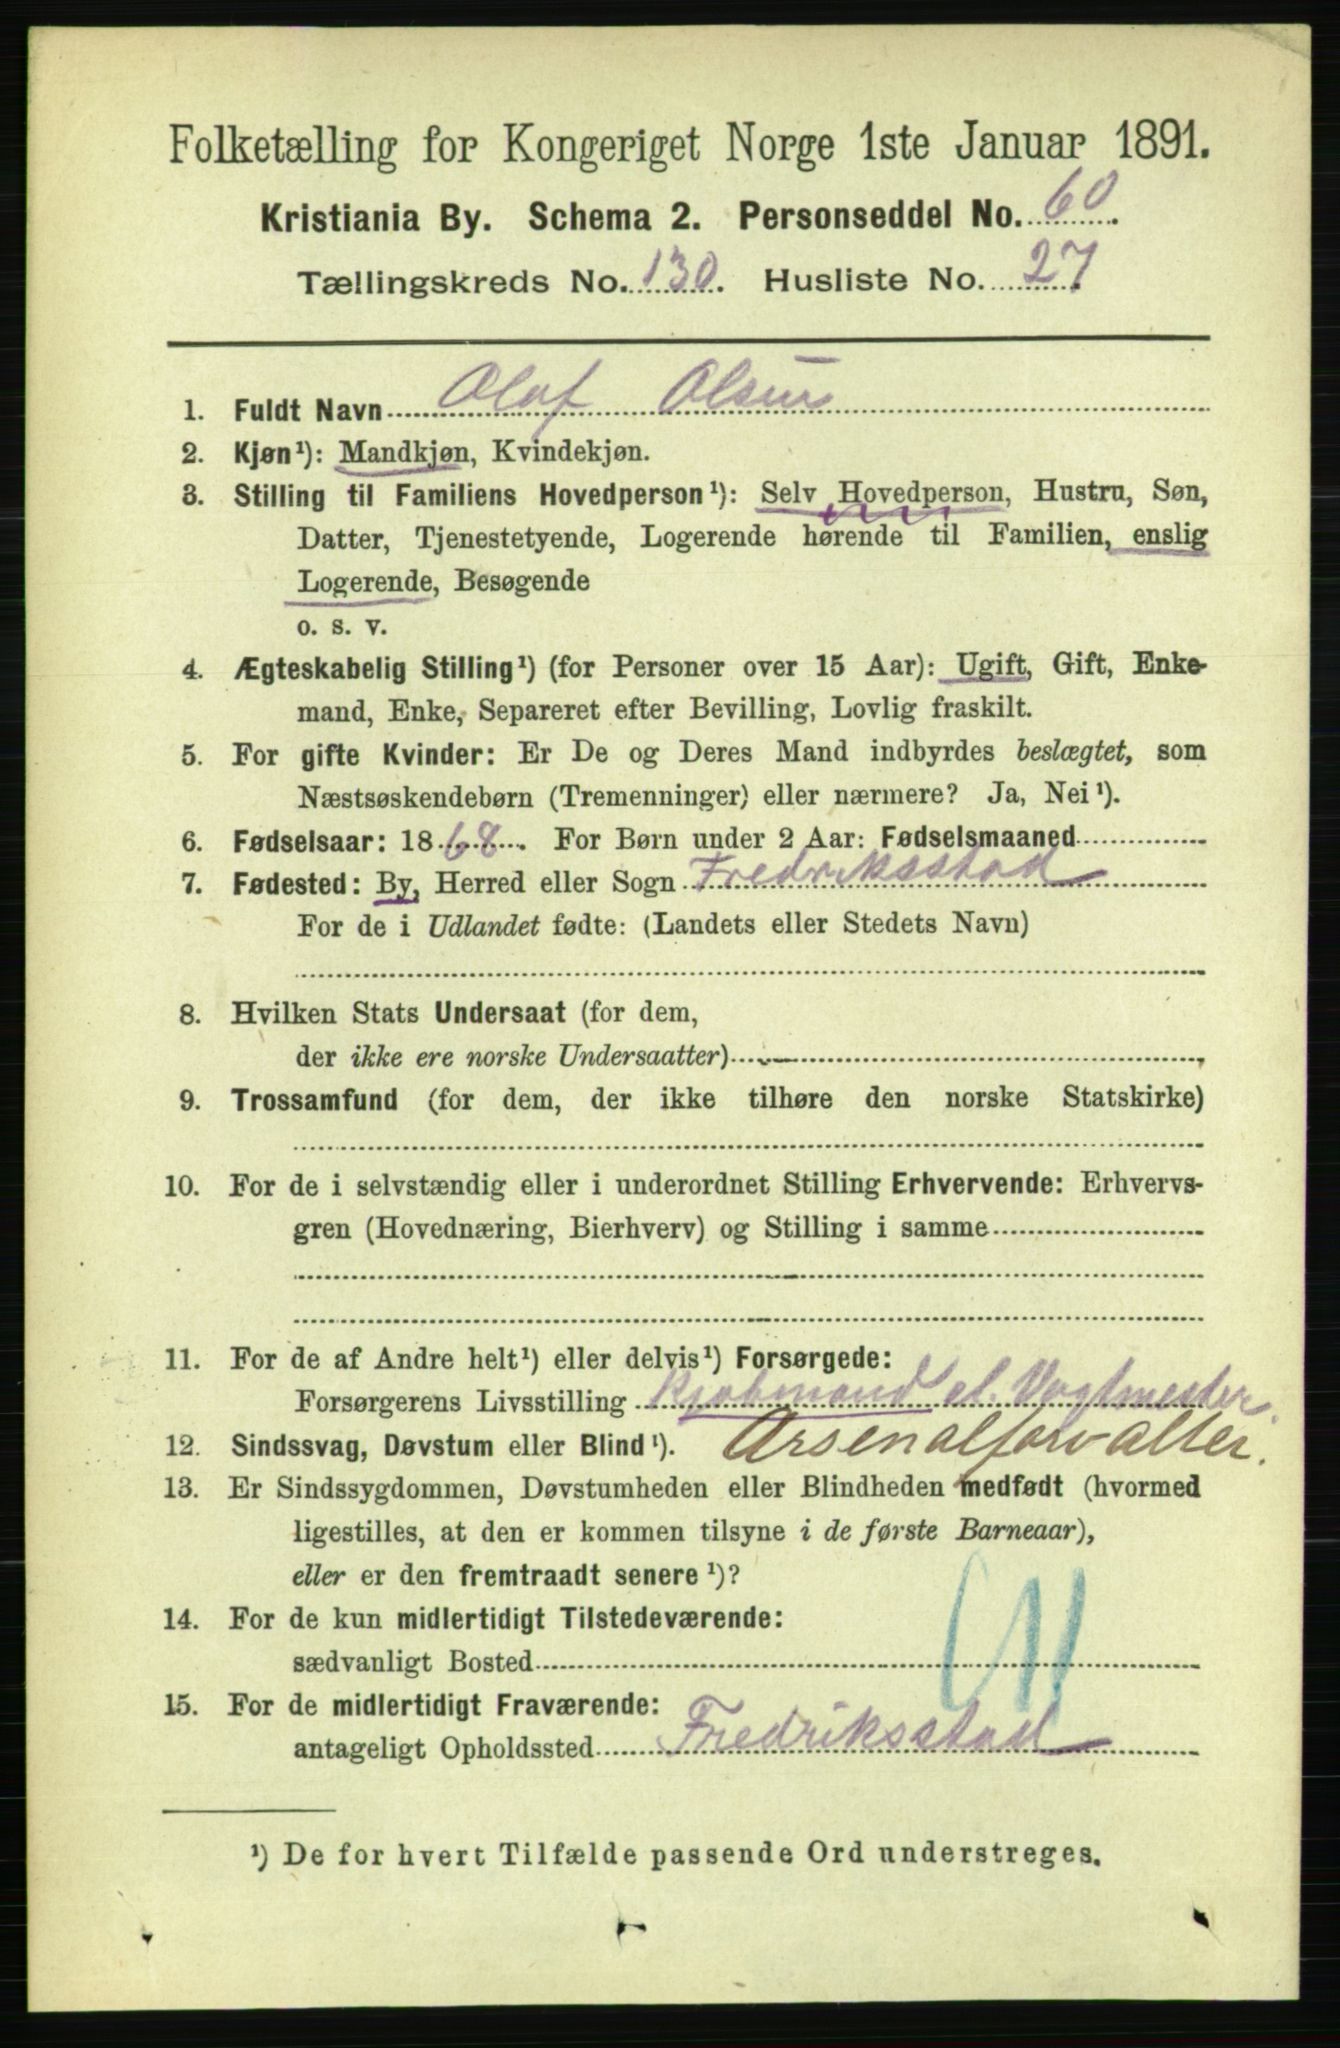 Folketælling for Kongeriget Norge 1ste Januar 1891.
Kristiania By. Schema 2. Personseddel No. 60.
Tællingskreds No. 130. Husliste No. 27
1. Fuldt Navn Olaf Olsen
2. Kjøn¹): Mandkjøn, Kvindekjøn.
3. Stilling til Familiens Hovedperson¹): Selv Hovedperson, Hustru, Søn,
Datter, Tjenestetyende, Logerende hørende til Familien, enslig
Logerende, Besøgende
o. s. v.
4. Ægteskabelig Stilling¹) (for Personer over 15 Aar): Ugift, Gift, Enke-
mand, Enke, Separeret efter Bevilling, Lovlig fraskilt.
5. For gifte Kvinder: Er De og Deres Mand indbyrdes beslægtet, som
Næstsøskendebørn (Tremenninger) eller nærmere? Ja, Nei¹).
6. Fødselsaar: 1868. For Børn under 2 Aar: Fødselsmaaned
7. Fødested: By, Herred eller Sogn Fredriksstad
For de i Udlandet fødte: (Landets eller Stedets Navn)
8. Hvilken Stats Undersaat (for dem,
der ikke ere norske Undersaatter)
9. Trossamfund (for dem, der ikke tilhøre den norske Statskirke)
10. For de i selvstændig eller i underordnet Stilling Erhvervende: Erhvervs-
gren (Hovednæring, Bierhverv) og Stilling i samme
11. For de af Andre helt¹) eller delvis¹) Forsørgede:
Forsørgerens Livsstilling Kjøbmand el. Vagtmester.
12. Sindssvag, Døvstum eller Blind¹). Arsenalforvalter.
13. Er Sindssygdommen, Døvstumheden eller Blindheden medfødt (hvormed
ligestilles, at den er kommen tilsyne i de første Barneaar),
eller er den fremtraadt senere¹)?
14. For de kun midlertidigt Tilstedeværende:
sædvanligt Bosted
15. For de midlertidigt Fraværende:
antageligt Opholdssted Fredriksstad
¹) De for hvert Tilfælde passende Ord understreges.